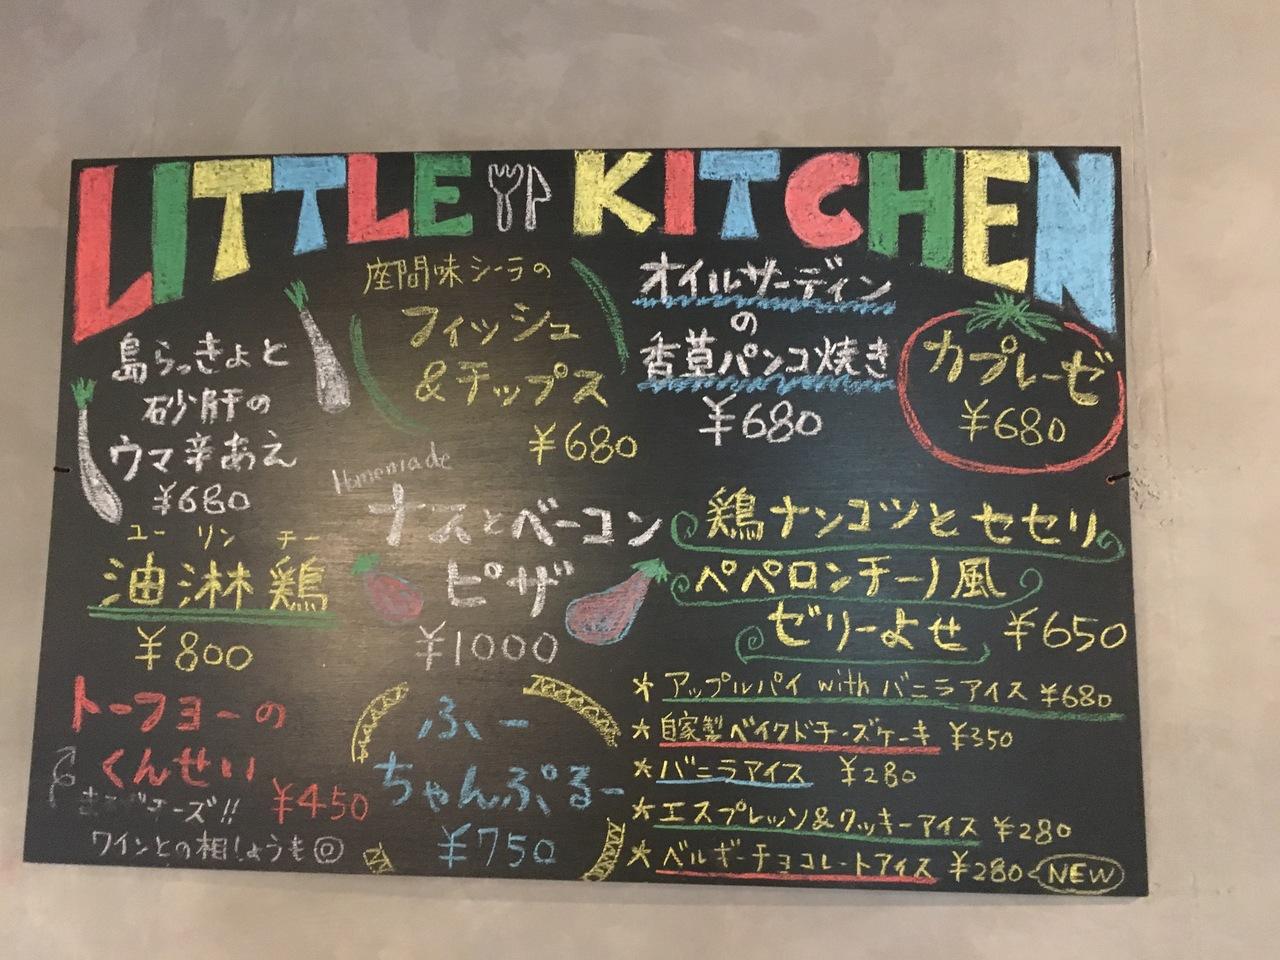 LITTLE KITCHEN
島らっきょと
砂肝の
ウマ辛あえ
¥680
座間味シーラの
フィッシュ
&チップス
¥680
オイルサーディン
の
香草パンコ焼き
¥680
カプレーゼ
¥680
ユーリンチー
油淋鶏
¥800
Homemade
ナスとベーコン
ピザ
¥1000
鶏ナンコツとセセリ
ペペロンチーノ風
ゼリーよせ ¥650
トーフヨーの
くんせい
¥450
チーズ!!
ワインとの相しょうも◎
ふー
ちゃんぷるー
¥750
★アップルパイ with バニラアイス ¥680
★自家製ベイクドチーズケーキ ¥350
★バニラアイス ¥280
★エスプレッソ&クッキーアイス ¥280
★ベルギーチョコレートアイス ¥280 NEW